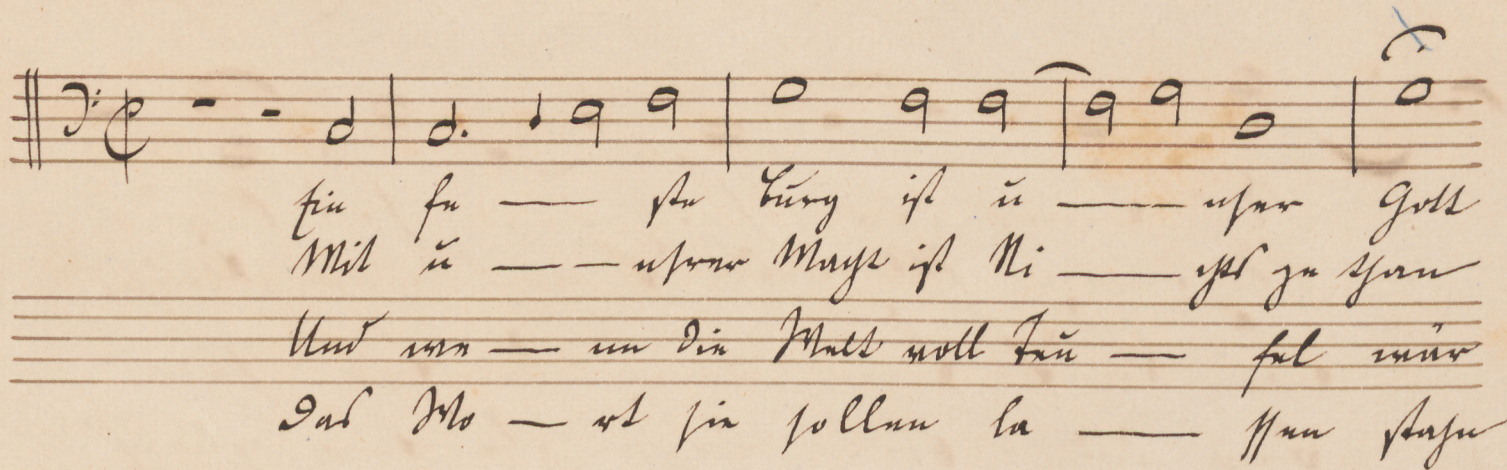 Ein fe — ste Burg ist u — nser Gott
Mit u — nsrer Macht ist Ni — chts zu than
Und we — nn die Welt voll Teu — fel wär
Das Wo — rt sie sollen la — ssen stahn